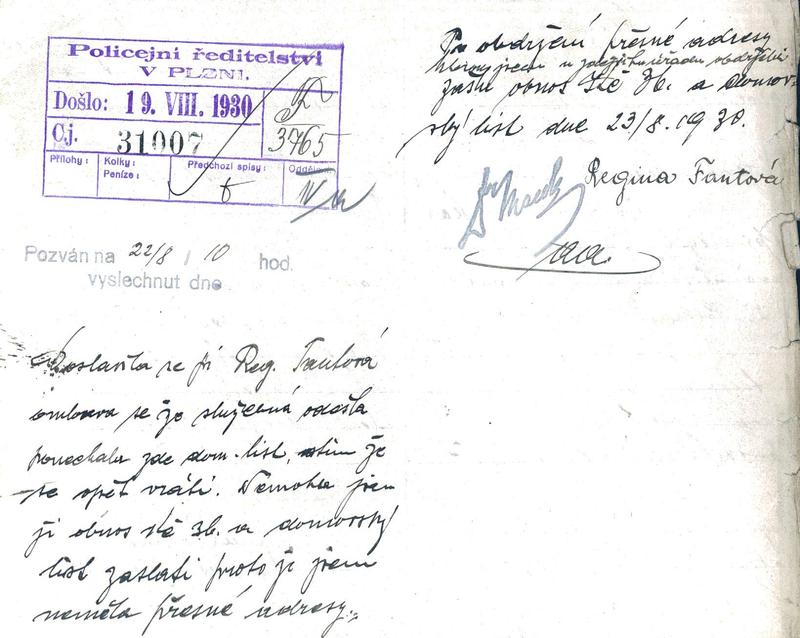 Policejní ředitelství
V PLZNI.
Došlo: 19. VIII. 1930
Čj. 31007
3765
Přílohy:
Kolky:
Peníze:
Předchozí spisy:
Pozván na 22/8 / 10 hod.
vyslechnut dne
Dostavila se pí Reg. Fantová
omlouva se že služebná odešla
ponechala zde dom. list, s tím že
se opět vrátí. Nemohla jsem
ji obnos Kč 36. a domovský
list zaslati proto že jsem
neměla přesné adresy.
Po obdržení přesné adresy
kterou jsem u zdejšího úřadu obdržela
zašlu obnos Kč 36. a domov-
ský list dne 23/8. 1930.
Regina Fantová